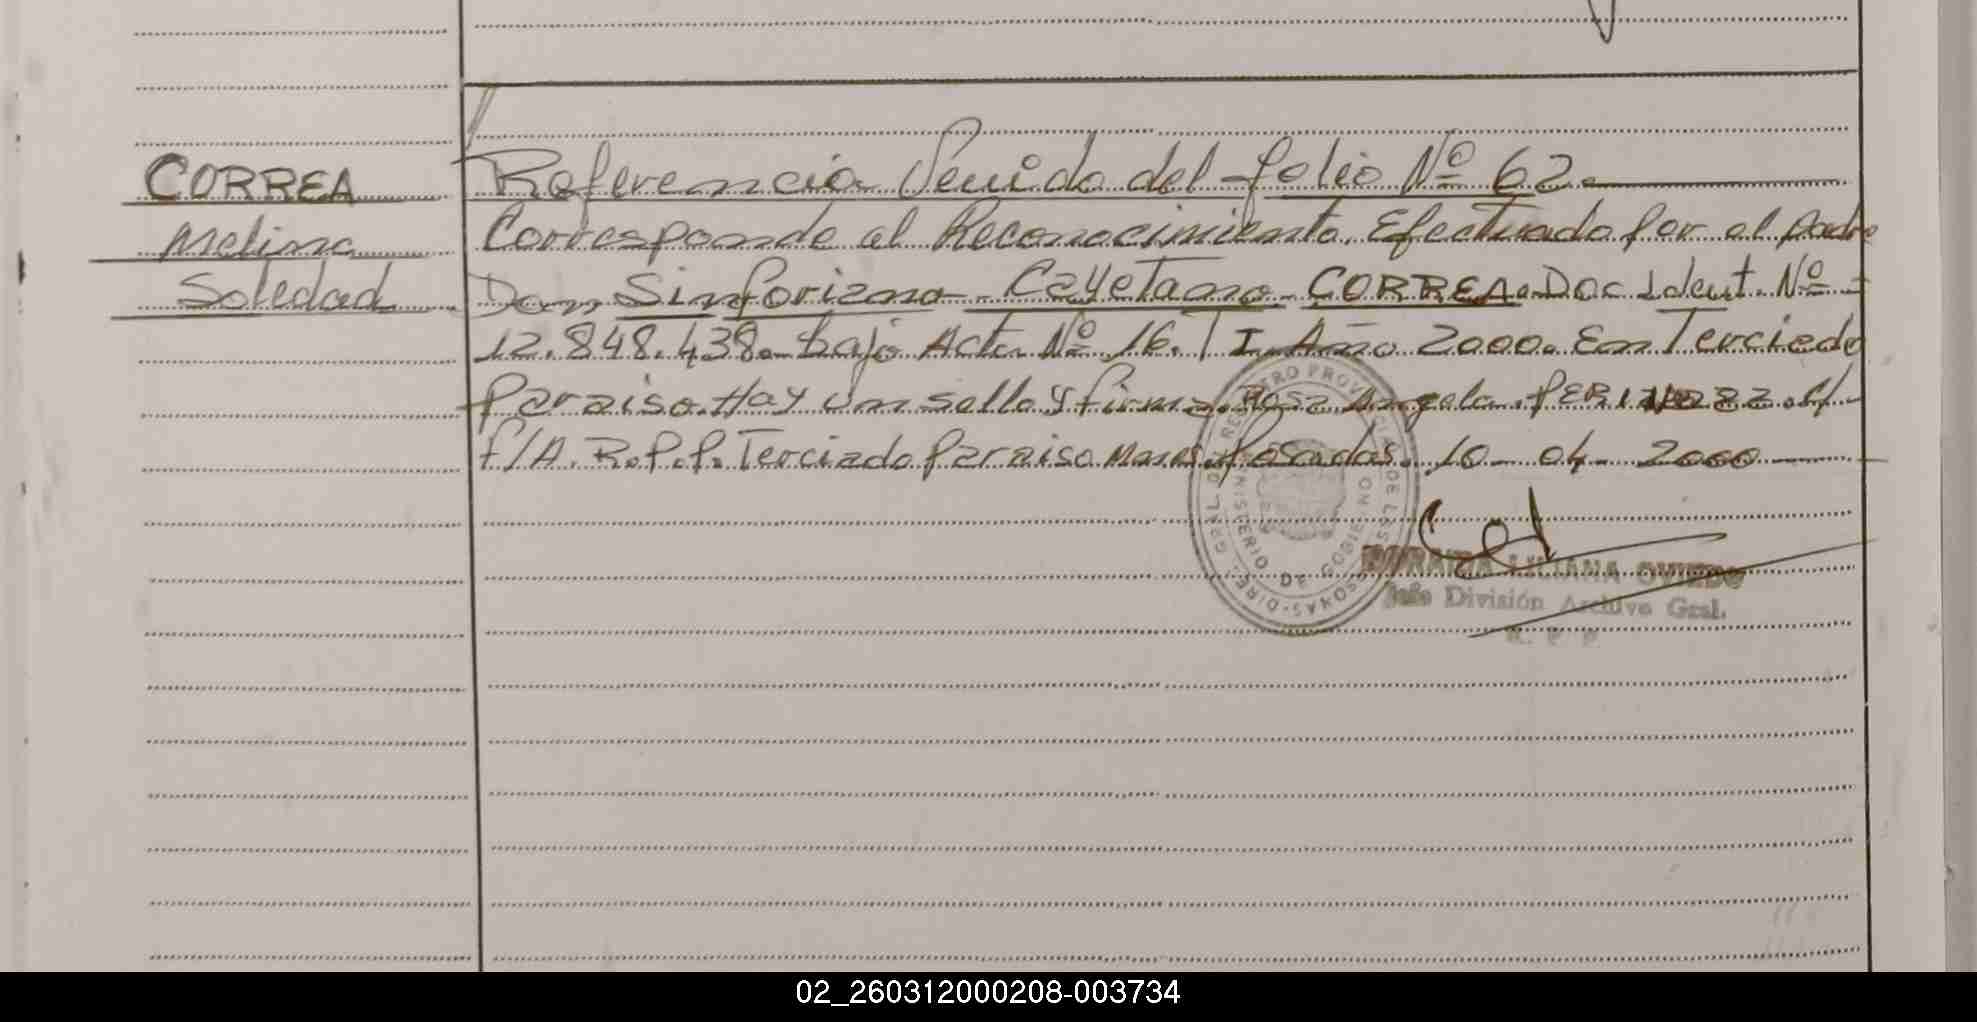 CORREA
Melina
Soledad
Referencia Venida del folio Nº 62.
Corresponde al Reconocimiento Efectuado por el padre
Don Sinforiano - Cayetano - CORREA. Doc Ident. Nº -
12.848.438. bajo Acta Nº 16. T I. Año 2000. En Terciado
Paraiso. Hay un sello y firma. Rosa Angela
F/A. R.P.P. Terciado Paraiso Mnes. Posadas. 10 - 04 - 2000
MINISTERIO DE GOBIERNO
LILIANA OVIEDO
Jefe División Archivo Gral.
R. P. P.
02_260312000208-003734